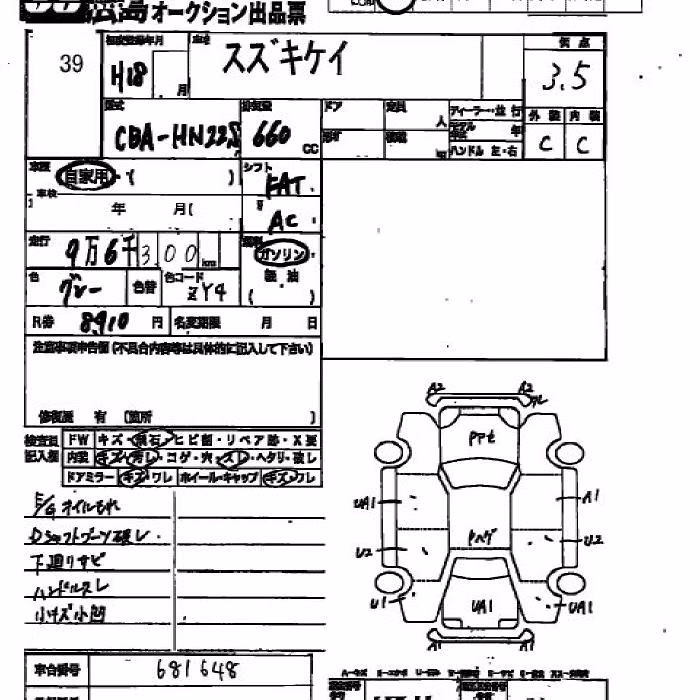 広島オークション出品票
39
初度登録年月
H18
月
車名
スズキケイ
評点
3.5
型式
CBA-HN22S
排気量
660
CC
ドア
形状
定員
人
積載
ディーラー・並行
モデル年式
年
ハンドル 左・右
外装
内装
C
C
車歴
自家用・(
)
シフト
FAT
車検
年
月(
AC
走行
9万6千300
km
燃料
ガソリン・
軽・油
(
)
色
グレー
色替
色コード
ZY4
R券
8910
円
名変期限
月
日
注意事項申告欄(不具合内容等は具体的に記入して下さい)
修復歴
有
(箇所
)
検査員記入欄
FW
キズ・飛石・ヒビ割・リペア跡・X要
内装
キズ・汚レ・コゲ・穴・スレ・ヘタリ・破レ
ドアミラー
キズ・ワレ
ホイール・キャップ
キズ・ワレ
E/Gオイルもれ
Dシャフトブーツ破レ.
下廻りサビ
ハンドルスレ
小キズ小凹
A2
A2
ワレ
UA1
A1
U2
U2
U1
UA1
UA1
A1
A1
車台番号
681648